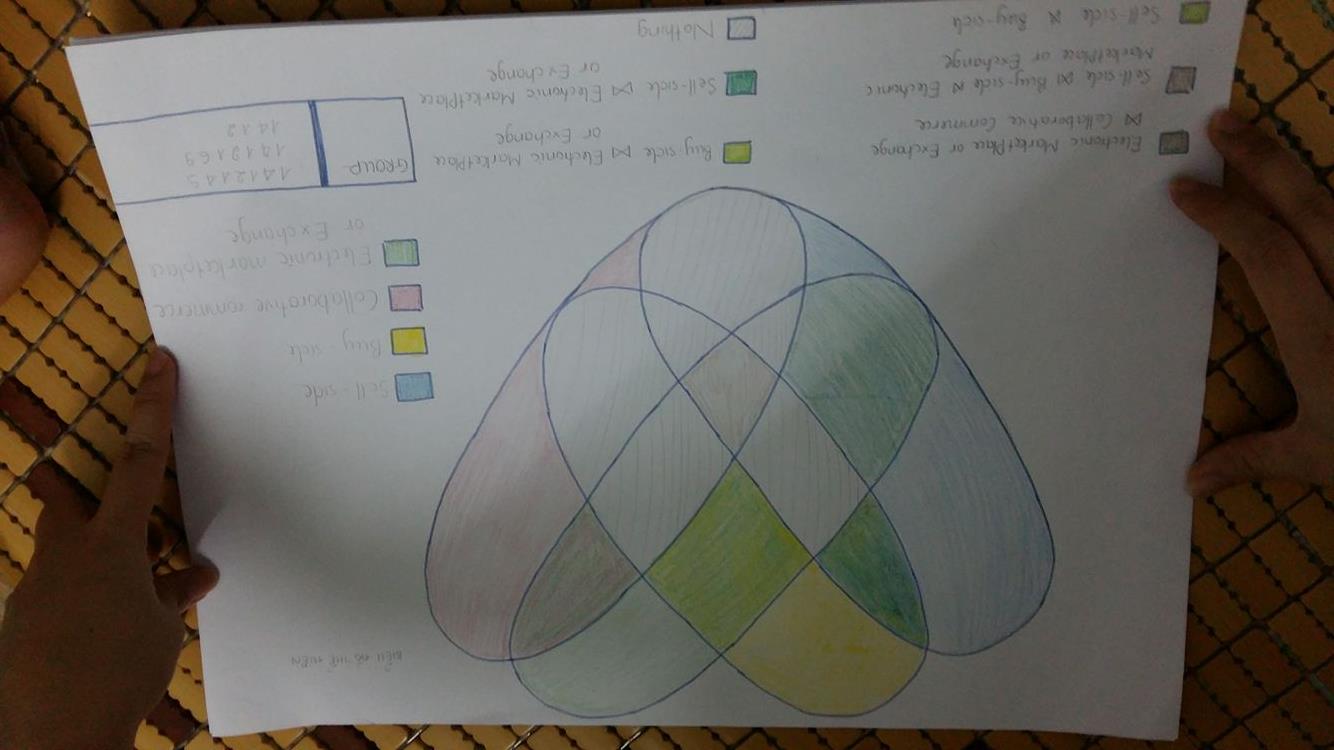 BIỂU ĐỒ
Sell-side
Buy-side
Collaborative commerce
Electronic marketplace
or Exchange
GROUP
1412145
1412169
1412
Electronic MarketPlace or Exchange
⋈ Collaborative Commerce
Sell-side ⋈ Buy-side ⋈ Electronic
MarketPlace or Exchange
Sell-side ⋈ Buy-side
Buy-side ⋈ Electronic MarketPlace
or Exchange
Sell-side ⋈ Electronic MarketPlace
or Exchange
Nothing